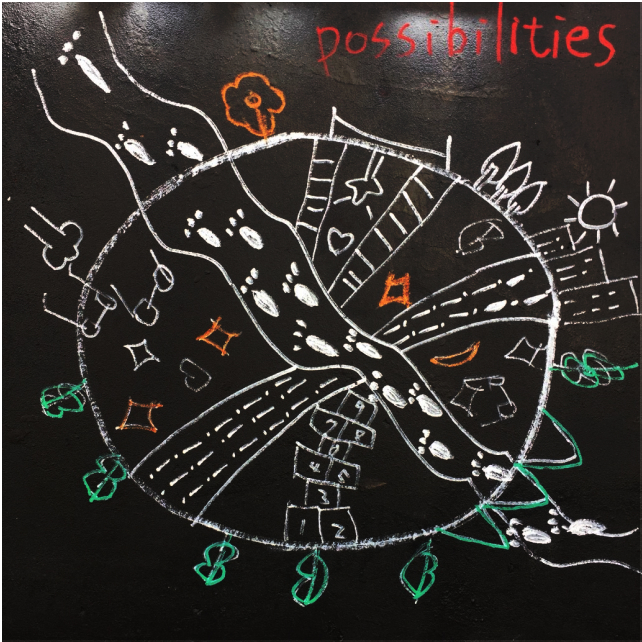 possibilities
7
4 5
3
1 2